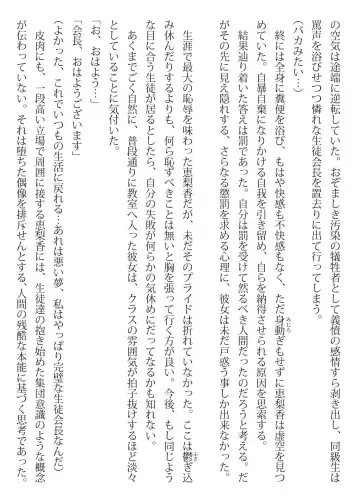 の空気は途端に逆転していた。おぞましき汚染の犠牲者として義憤の感情すら剥き出し、同級生は
罵声を浴びせつつ憐れな生徒会長を置去りに出て行ってしまう。
(バカみたい…)
終には全身に糞便を浴び、もはや快感も不快感もなく、ただ身動ぎもせずに恵梨香は虚空を見つ
みじろ
めていた。自暴自棄になりかける自我を引き留め、自らを納得させられる原因を思索する。
結果辿り着いた答えは罰であった。自分は罰を受けて然るべき人間だったのだろうと考える。だ
がその先に見え隠れする、さらなる懲罰を求める心理に、彼女は未だ戸惑う事しか出来なかった。
生涯で最大の恥辱を味わった恵梨香だが、未だそのプライドは折れていなかった。ここは鬱ぎ込
ふさ
み休んだりするよりも、何ら恥ずべきことは無いと胸を張って行く方が良い。今後、もし同じよう
な目に合う生徒が居るとしたら、自分の失敗が何らかの気休めにだってなるかも知れない。
あくまでごく自然に、普段通りに教室へ入った彼女は、クラスの雰囲気が拍子抜けするほど淡々
としていることに気付いた。
「お、おはよう…」
「会長、おはようございます」
(よかった、これでいつもの生活に戻れる…あれは悪い夢、私はやっぱり完璧な生徒会長なんだ)
皮肉にも、一段高い立場で周囲に接する恵梨香には、生徒達の抱き始めた集団意識のような概念
が伝わっていない。それは堕ちた偶像を排斥せんとする、人間の残酷な本能に基づく思考であった。